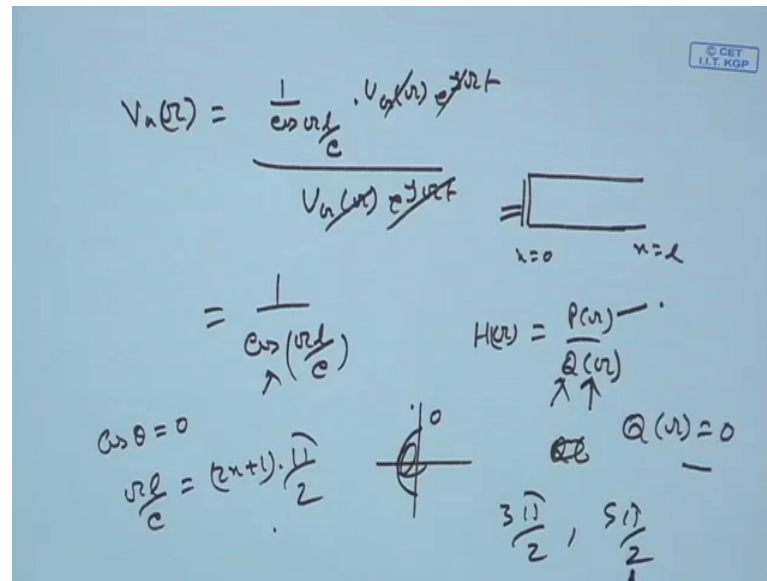 © CET
I.I.T. KGP
V_n(Ω) = 1/cos Ωl/c · V_G(Ω) e^{jΩt}
V_G(Ω) e^{jΩt}
x=0 x=l
= 1/cos(Ωl/c)
H(Ω) = P(Ω)/Q(Ω)
0
cos θ = 0
Q(Ω) = 0
Ωl/c = (2n+1)·π/2
3π/2, 5π/2